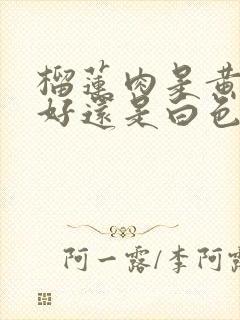 榴蓮肉是黃
好還是白色
阿一露/李阿露